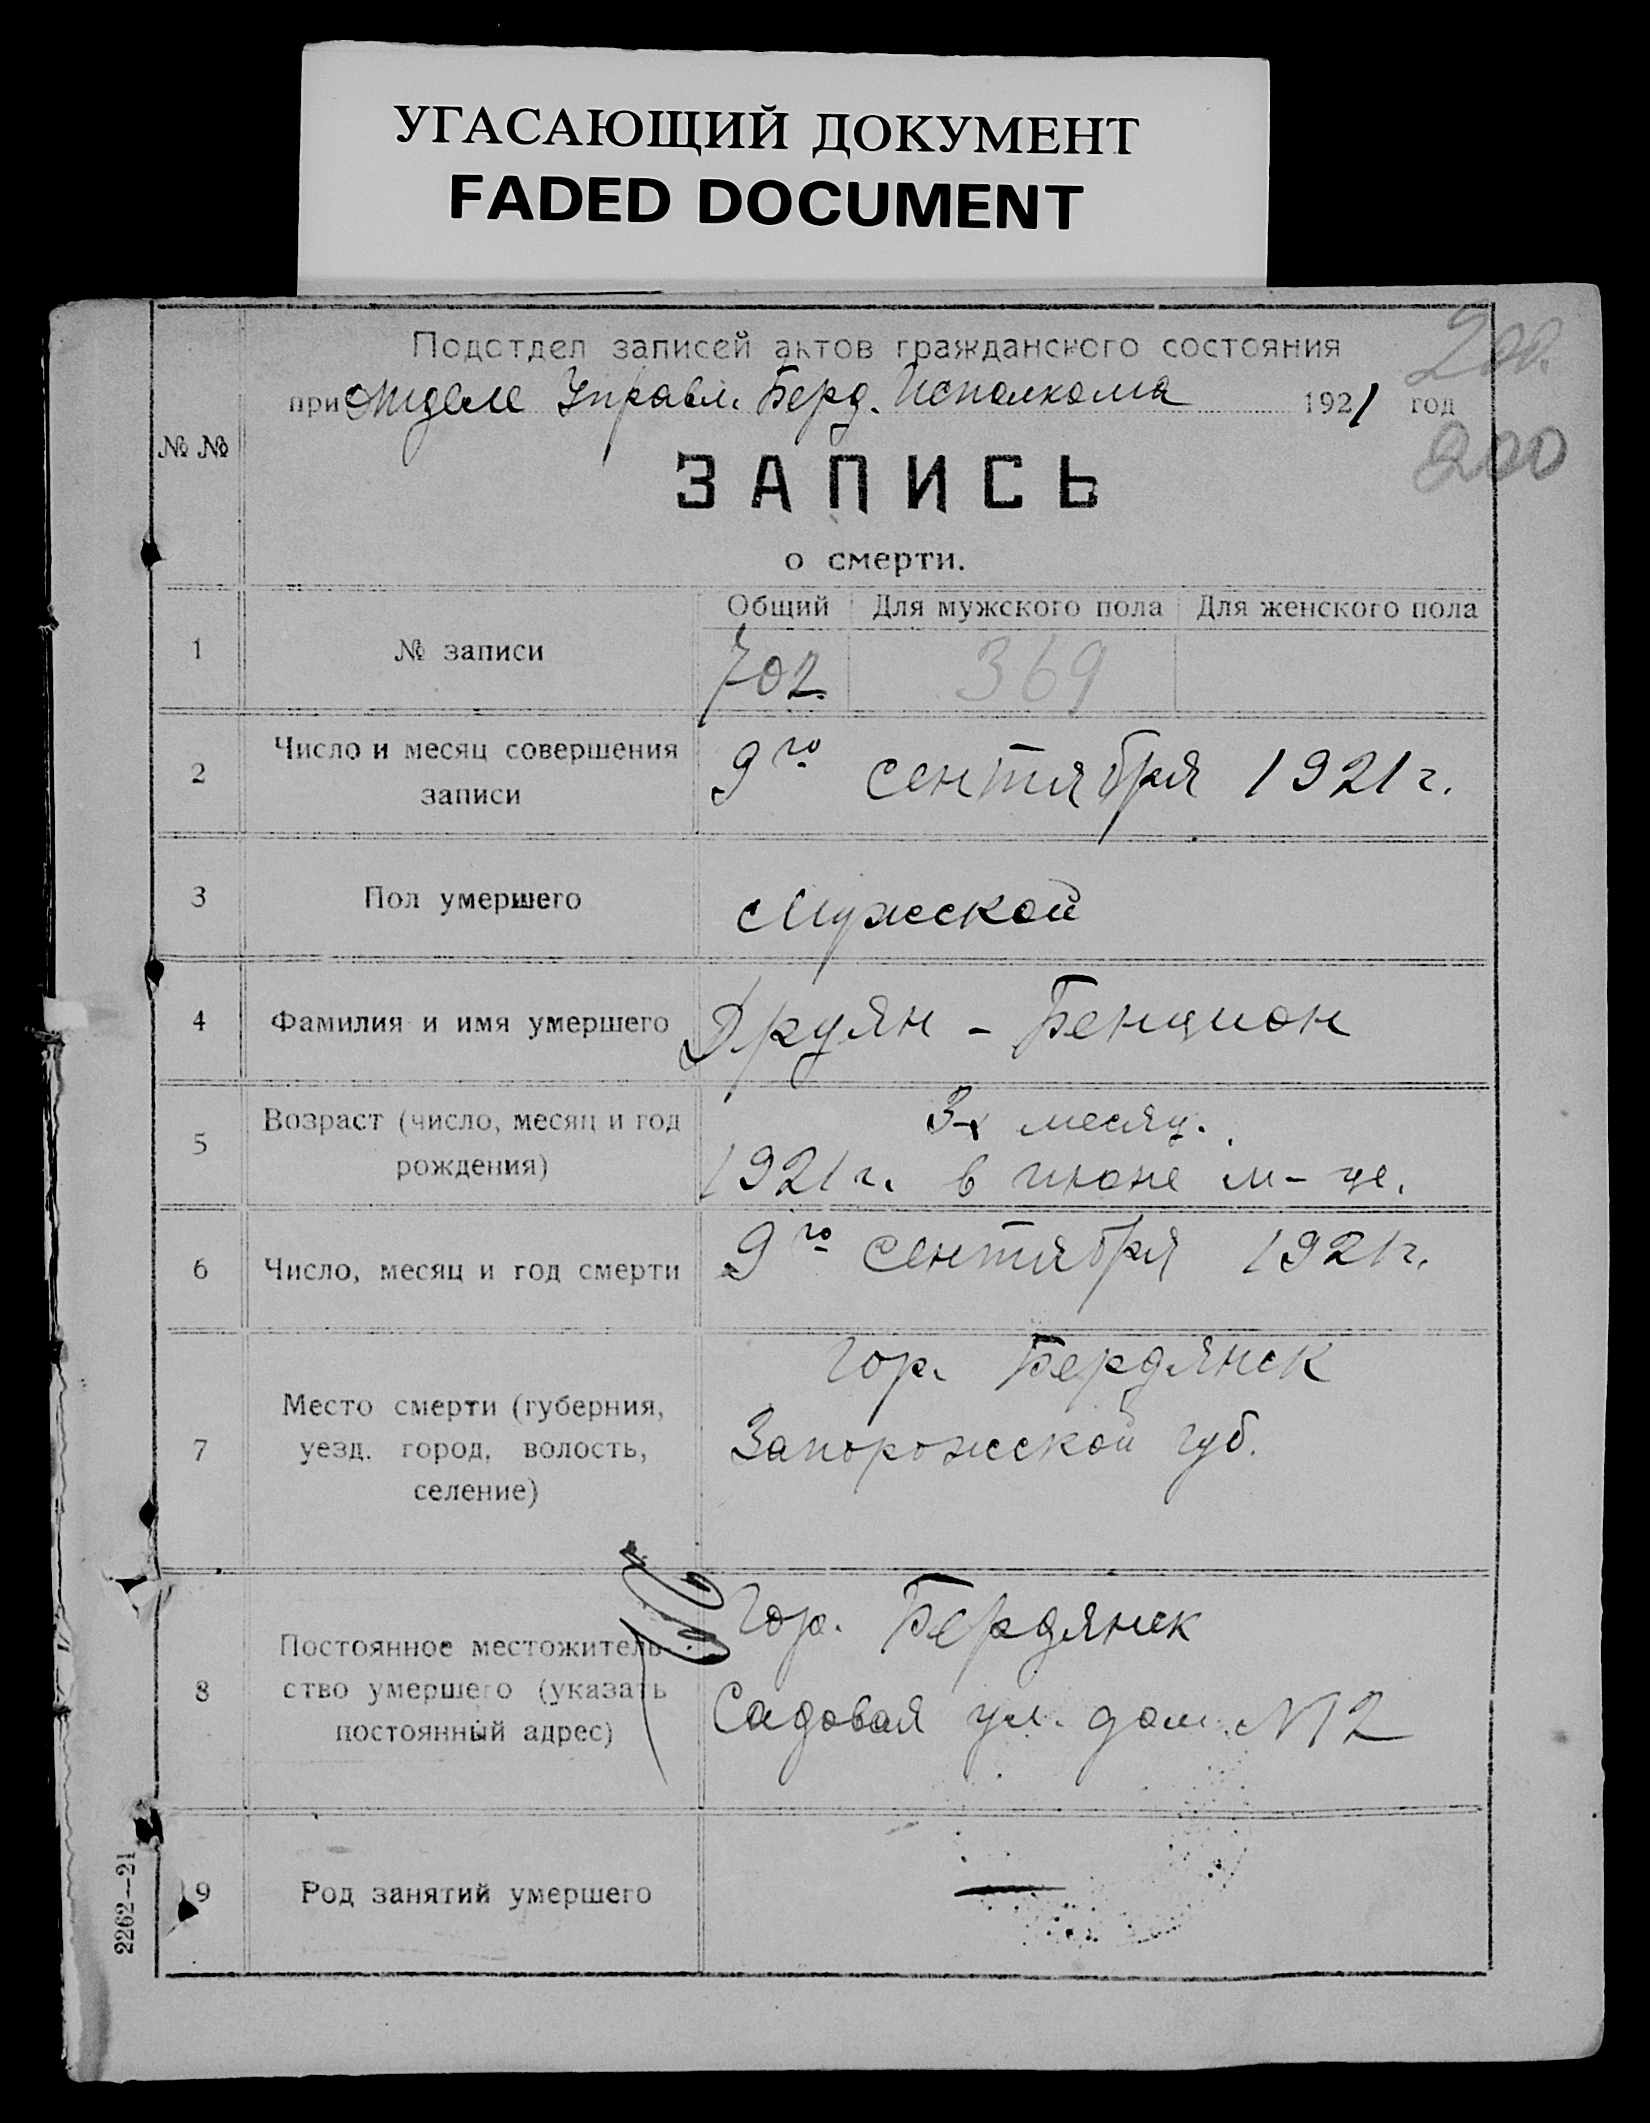 УГАСАЮЩИЙ ДОКУМЕНТ
FADED DOCUMENT
Подотдел записей актов гражданского состояния
при Отделе Управл. Берд. Исполкома 1921 год
200.
200
№ №
ЗАПИСЬ
о смерти.
Общий Для мужского пола Для женского пола
1 № записи 702. 369
2 Число и месяц совершения
записи
9го сентября 1921 г.
3 Пол умершего Мужской
4 Фамилия и имя умершего Друян - Бенцион
5 Возраст (число, месяц и год
рождения)
3х месяц.
1921 г. в июне м-це.
6 Число, месяц и год смерти 9го сентября 1921 г.
7 Место смерти (губерния,
уезд, город, волость,
селение)
Гор. Бердянск
Запорожской губ.
8 Постоянное местожитель-
ство умершего (указать
постоянный адрес)
Гор. Бердянск
Садовая ул. дом. №12
9 Род занятий умершего —
2262—21